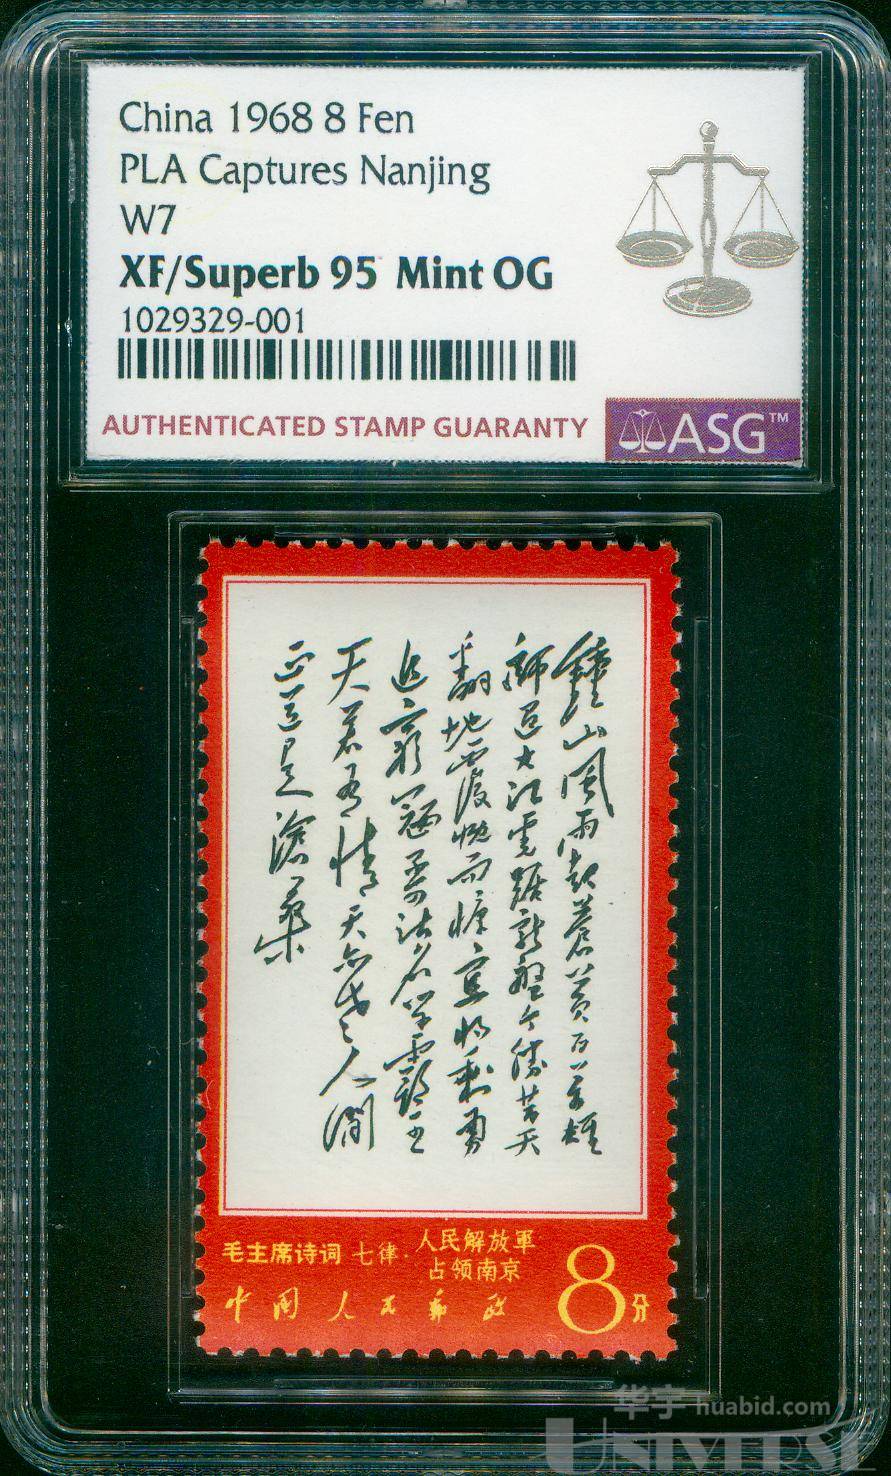 China 1968 8 Fen
PLA Captures Nanjing
W7
XF/Superb 95 Mint OG
1029329-001
AUTHENTICATED STAMP GUARANTY
ASG™
鐘山風雨起蒼黃百万雄
師過大江虎踞龍盤今勝昔天
翻地覆慨而慷宜將剩勇
追窮寇不可沽名學霸王
天若有情天亦老人間
正道是滄桑
毛主席诗词 七律·人民解放軍
占领南京
中國人民郵政 8分
华宇 huabid.com
UNIVERSE